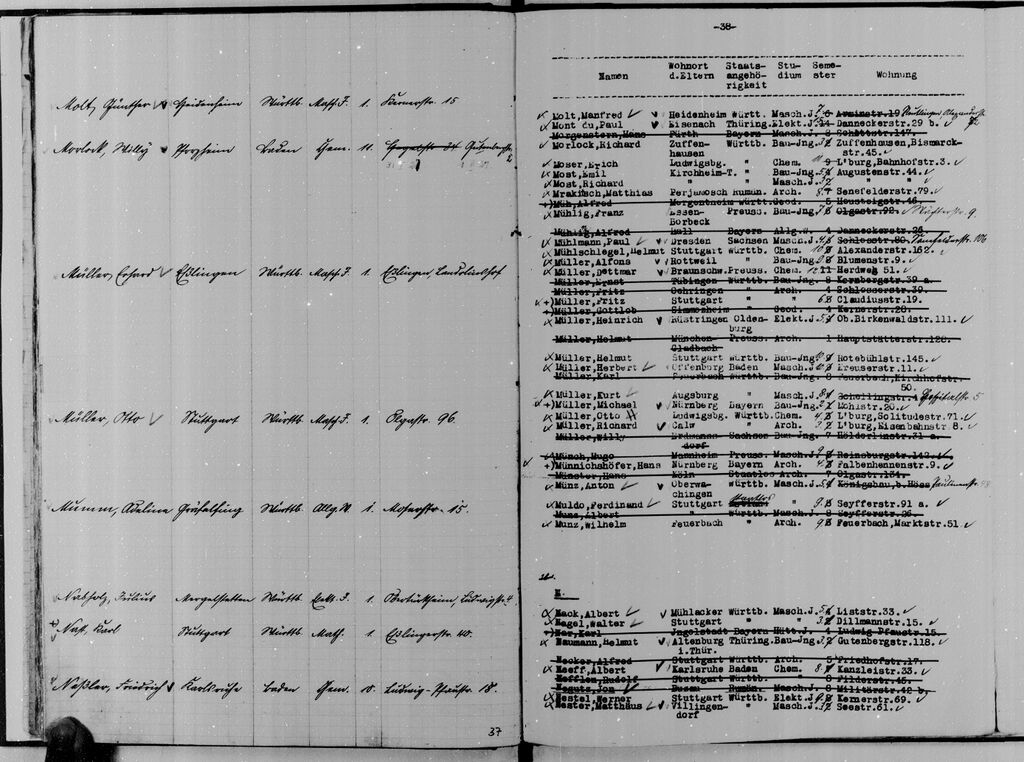 Molt, Günther Heidenheim Württb. Masch. I. 1. Kernerstr. 15
Morlock, Willy Pforzheim Baden Chem. 11. Gutenbergstr. 2
Müller, Erhard Eßlingen Württb. Masch. I. 1. Eßlingen, Landolinshof
Müller, Otto Stuttgart Württb. Masch. I. 1. Olgastr. 96.
Mumm, Adeline Württb. Allg. W. 1. Moserstr. 15.
Nabholz, Julius Mergelstetten Württb. Elekt. I. 1. Obertürkheim, Ludwigstr. 4
Nast, Karl Stuttgart Württb. Math. 1. Eßlingerstr. 40.
Naßler, Friedrich Karlsruhe Baden Chem. 10. Ludwig-Pfaustr. 18.
37
-38-
Namen Wohnort d.Eltern Staats-angehö-rigkeit Stu-dium Seme-ster Wohnung
Molt, Manfred Heidenheim Württ. Masch.J. 7 Arminstr.19 Reutlingen, Alexanderstr.
Mont du, Paul Eisenach Thüring. Elekt.J. Danneckerstr.29 b.
Morgenstern, Hans Fürth Bayern Masch.J. 8 Schöttstr.147.
Morlock, Richard Zuffen- Württb. Bau-Jng. Zuffenhausen, Bismarck-
hausen str.45.
Moser, Erich Ludwigsbg. " Chem. L'burg, Bahnhofstr.3.
Most, Emil Kirchheim-T. " Bau-Jng. Augustenstr.44.
Most, Richard " " Masch.J. "
Mrakitsch, Matthias Perjamosch Rumän. Arch. Senefelderstr.79.
+)Müh, Alfred Morgentheim württ. Geod. 5 Heusteigstr.46.
Mühlig, Franz Essen- Preuss. Bau-Jng. Olgastr.92.
Borbeck
Mühlig, Alfred Hall Bayern Allg. 4 Danneckerstr.26
Mühlmann, Paul Dresden Sachsen Masch.J. Schlosstr.80. 106
Mühlschlegel, Helmut Stuttgart Württb. Chem. Alexanderstr.162.
Müller, Alfons Rottweil " Bau-Jng. Blumenstr.9.
Müller, Dettmar Braunschw. Preuss. Chem. 11 Herdweg 51.
Müller, Ernst Tübingen Württb. Bau-Jng. 8 Kornbergstr.39 a.
Müller, Fritz Oehringen " Arch. 4 Schlosserstr.39.
+)Müller, Fritz Stuttgart " " 6 Claudiusstr.19.
+)Müller, Gottlob Simmozheim " Geod. 4 Kernerstr.28.
Müller, Heinrich Rüstringen Olden- Elekt.J. Ob.Birkenwaldstr.111.
burg
Müller, Helmut München- Preuss. Arch. 1 Hauptstätterstr.126.
Gladbach
Müller, Helmut Stuttgart Württb. Bau-Jng. Rotebühlstr.145.
Müller, Herbert Offenburg Baden Masch.J. Kreuserstr.11.
Müller, Karl Feuerbach Württb. Bau-Jng. 8 Feuerbach, Kirchhofstr.
50.
Müller, Kurt Augsburg " Masch.J. Schellingstr.4 Hospitalstr. 5
+)Müller, Michael Nürnberg Bayern Bau-Jng. Mohlstr.20.
Müller, Otto Ludwigsbg. Württb. Chem. L'burg, Solitudestr.71.
Müller, Richard Calw " Arch. L'burg, Eisenbahnstr.8.
Müller, Willy Erdmanns- Sachsen Bau-Jng. 7 Hölderlinstr.31 a.
dorf
Münch, Hugo Mannheim Preuss. Masch.J. Reinsburgstr.142.
+)Münnichshöfer, Hans Nürnberg Bayern Arch. Falbenhennenstr.9.
Münster, Hans Köln Staatlos Arch. 7 Olgastr.134.
Münz, Anton Oberwa- Württb. Masch.J. Königsbau, b.Hösa Paulinenstr.
chingen
Muldo, Ferdinand Stuttgart staatlos " Seyfferstr.91 a.
Munz, Albert " Württb. Masch.J. 8 Seyfferstr.26.
Munz, Wilhelm Feuerbach " Arch. Feuerbach, Marktstr.51.
N.
Nack, Albert Mühlacker Württb. Masch.J. Liststr.33.
Nagel, Walter Stuttgart " " Dillmannstr.15.
+)Nar, Karl Jngolstadt Bayern Hütt.J. 4 Ludwig Pfaustr.15.
Naumann, Helmut Altenburg Thüring. Bau-Jng. Gutenbergstr.118.
i.Thür.
Necker, Alfred Stuttgart Württb. Arch. 5 Friedhofstr.17.
Neeff, Albert Karlsruhe Baden Chem. Kanzleistr.33.
Nefflen, Rudolf Stuttgart Württb. " 8 Filderstr.45.
Neguts, Jon Buzau Rumän. Masch.J. 8 Militärstr.42 b.
Nestel, Werner Stuttgart Württb. Elekt.J. Kernerstr.69.
Nester, Matthäus Villingen- " Masch.J. Seestr.61.
dorf